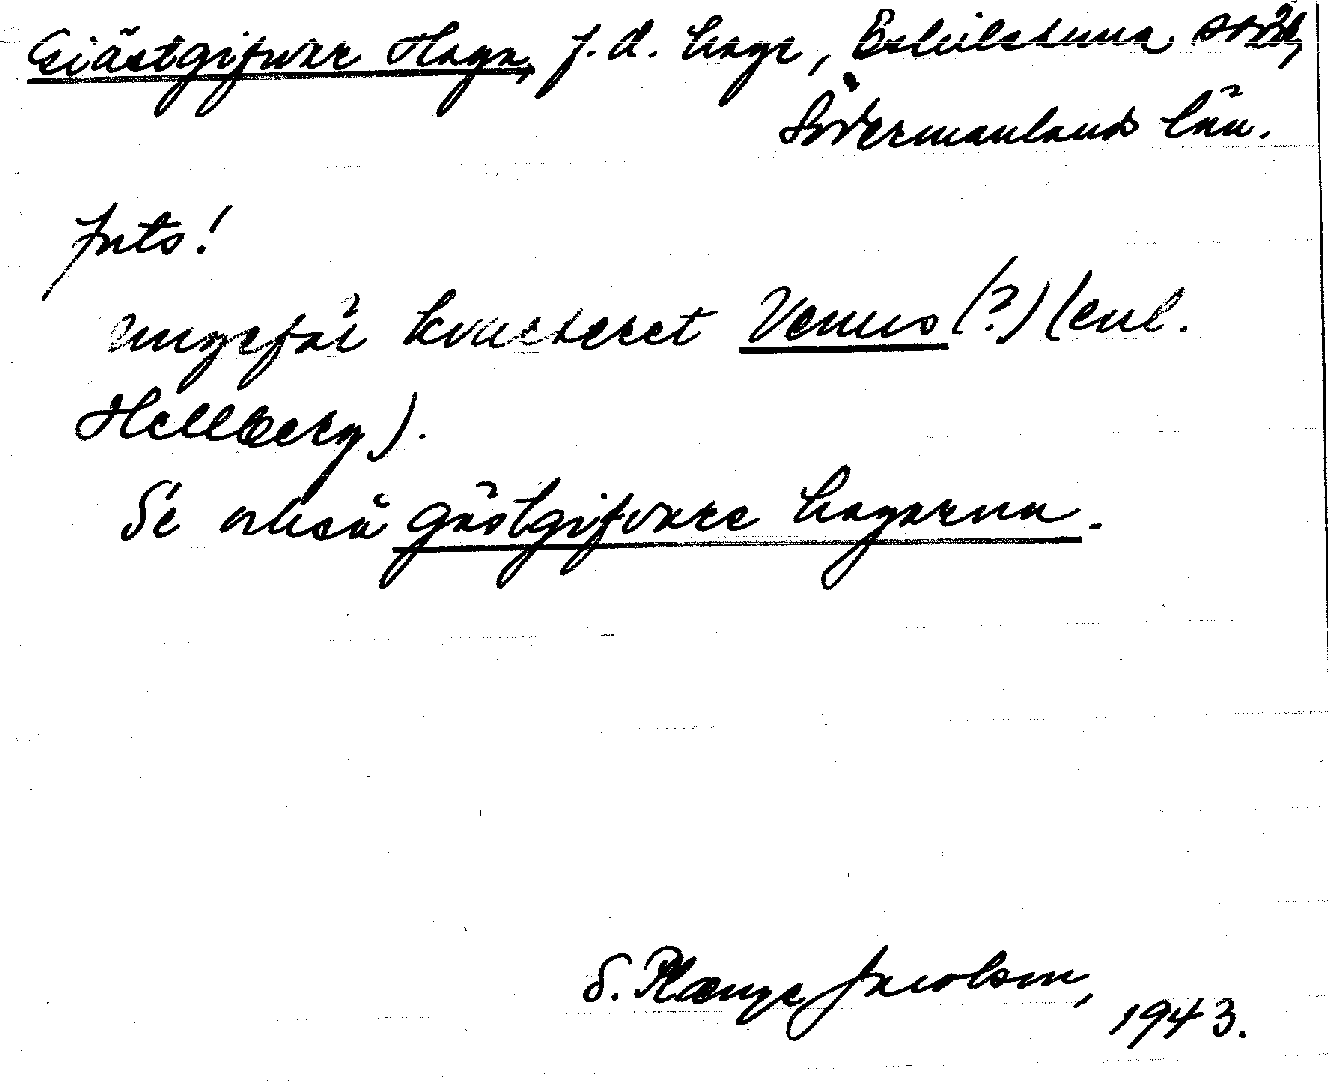 Giästgifvar Haga, f.d. hage, Eskilstuna stad,
Södermanlands län.
Juts!
Ungefär kvarteret Venus (?) (enl.
Hellberg).
Se också gästgifvare hagarna.
S. Plænge Jacobson,
1943.